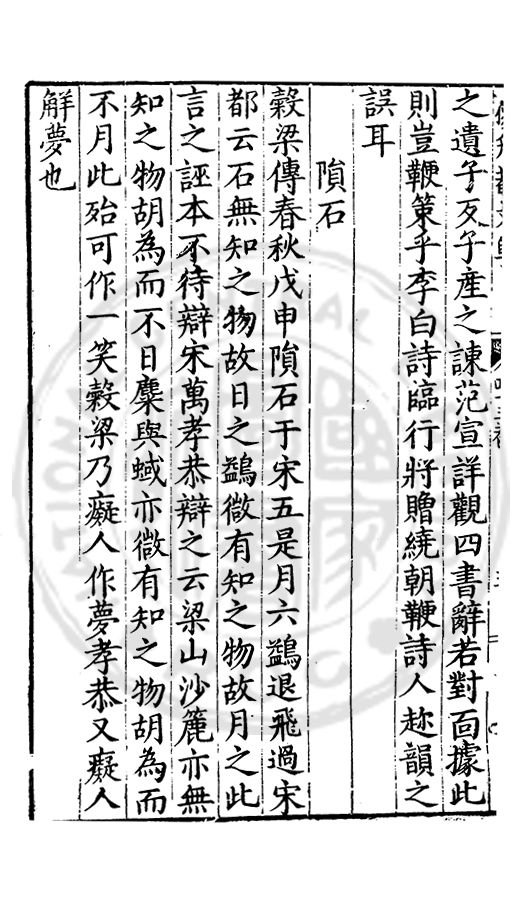 之遺子反子產之諫范宣詳觀四書辭若對面據此
則豈鞭策乎李白詩臨行將贈繞朝鞭詩人趂韻之
誤耳
隕石
穀梁傳春秋戊申隕石于宋五是月六鷁退飛過宋
都云石無知之物故日之鷁微有知之物故月之此
言之誣本不待辯宋萬孝恭辯之云梁山沙簏亦無
知之物胡為而不日麋與蜮亦微有知之物胡為而
不月此殆可作一笑穀梁乃癡人作夢孝恭又癡人
解夢也